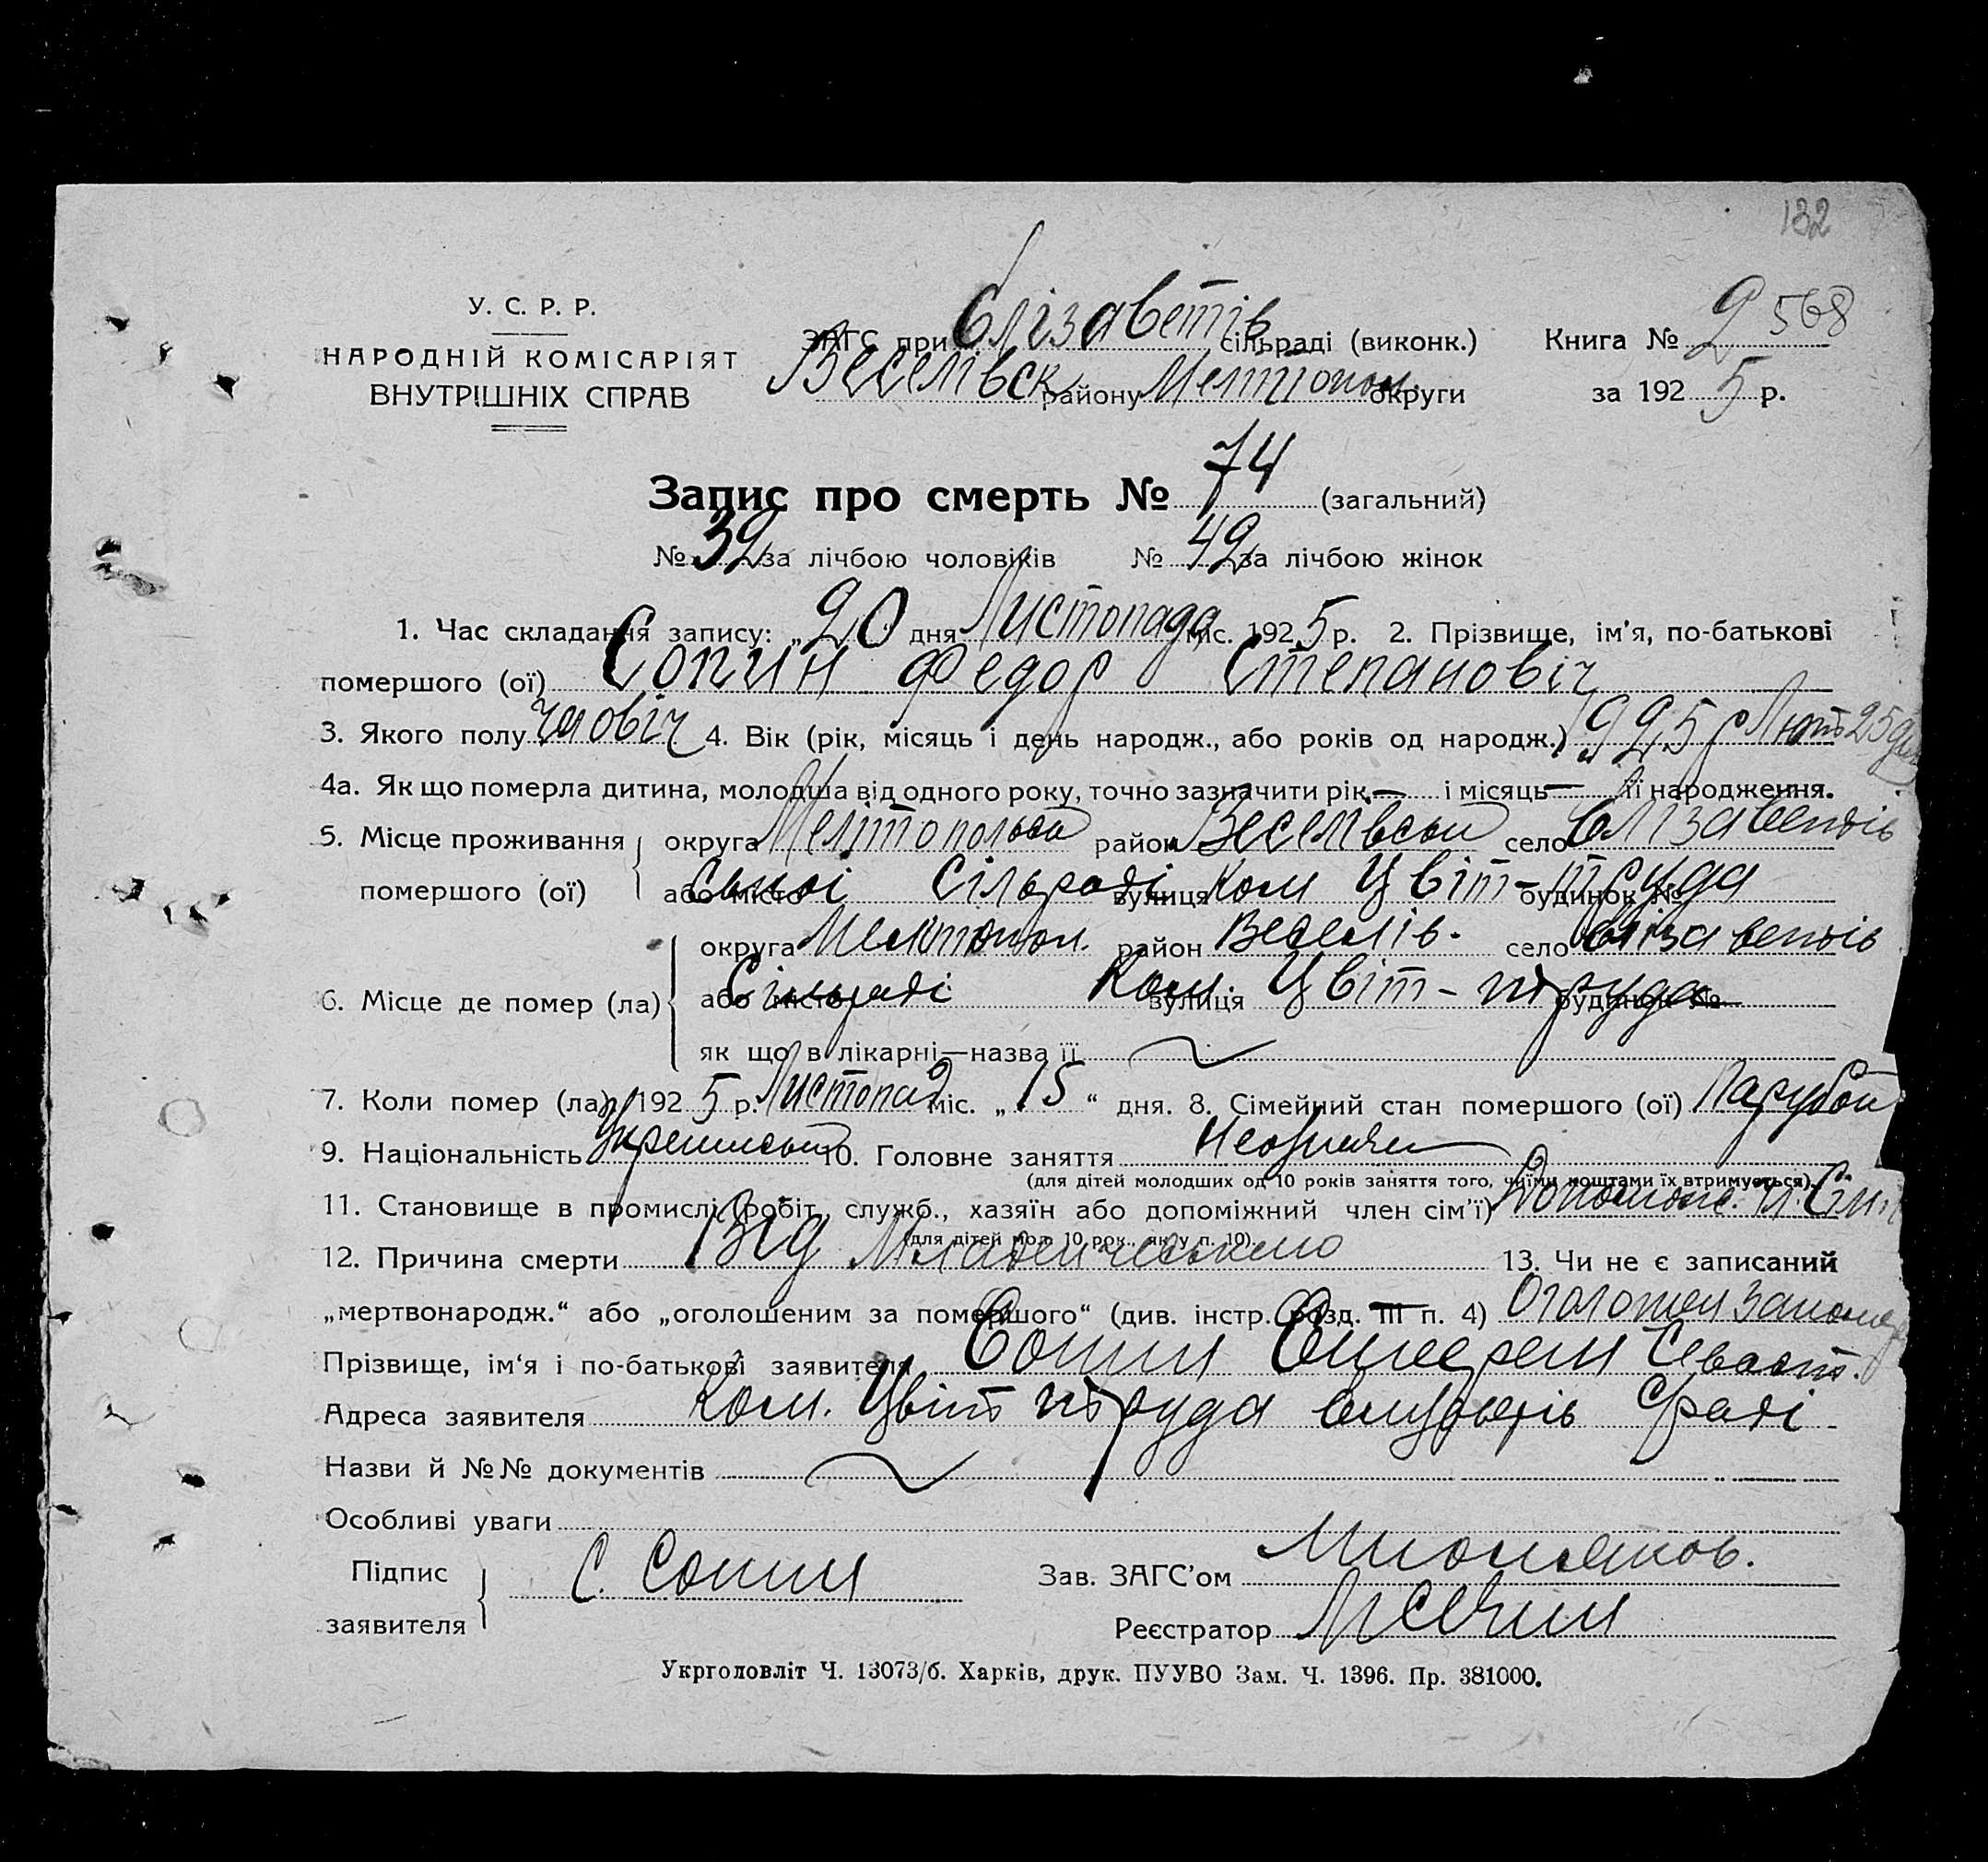 132
У. С. Р. Р.
НАРОДНІЙ КОМІСАРІЯТ
ВНУТРІШНІХ СПРАВ
ЗАГС при Єлізаветів сільраді (виконк.) Книга № 2 568
Веселівск району Мелітопол. округи за 1925 р.
Запис про смерть № 74 (загальний)
№ 32 за лічбою чоловіків № 42 за лічбою жінок
1. Час складання запису: „20“ дня Листопада міс. 1925 р. 2. Прізвище, ім'я, по-батькові
помершого (ої) Сопин Федор Степановіч
3. Якого полу 4. Вік (рік, місяць і день народж., або років од народж.) 1925 р Лют 25 дня
4а. Як що померла дитина, молодша від одного року, точно зазначити рік — і місяць — її народження.
5. Місце проживання округа Мелітопольськ район Веселівськ село Єлізаветів
помершого (ої) або місто Сільраді вулиця Ком Цвіт-труда будинок №
округа Мелітопол. район Веселів. село Єлізаветів
6. Місце де помер (ла) або місто Сільраді вулиця Ком. Цвіт-труда будинок №
як що в лікарні—назва її
7. Коли помер (ла) 1925 р. Листопад міс. „15“ дня. 8. Сімейний стан помершого (ої) Парубок
9. Національність 10. Головне заняття
(для дітей молодших од 10 років заняття того, чиїми коштами їх втримується).
11. Становище в промислі (робіт., служб., хазяїн або допоміжний член сім'ї)
(для дітей мол. 10 рок., як у п. 10).
12. Причина смерти Від Младенческого 13. Чи не є записаний
„мертвонародж.“ або „оголошеним за помершого“ (див. інстр. розд. III п. 4)
Прізвище, ім'я і по-батькові заявителя Сопин
Адреса заявителя Ком. Цвіт труда
Назви й №№ документів
Особливі уваги
Підпис
заявителя С. Сопин
Зав. ЗАГС'ом
Реєстратор
Укрголовліт Ч. 13073/б. Харків, друк. ПУУВО Зам. Ч. 1396. Пр. 381000.